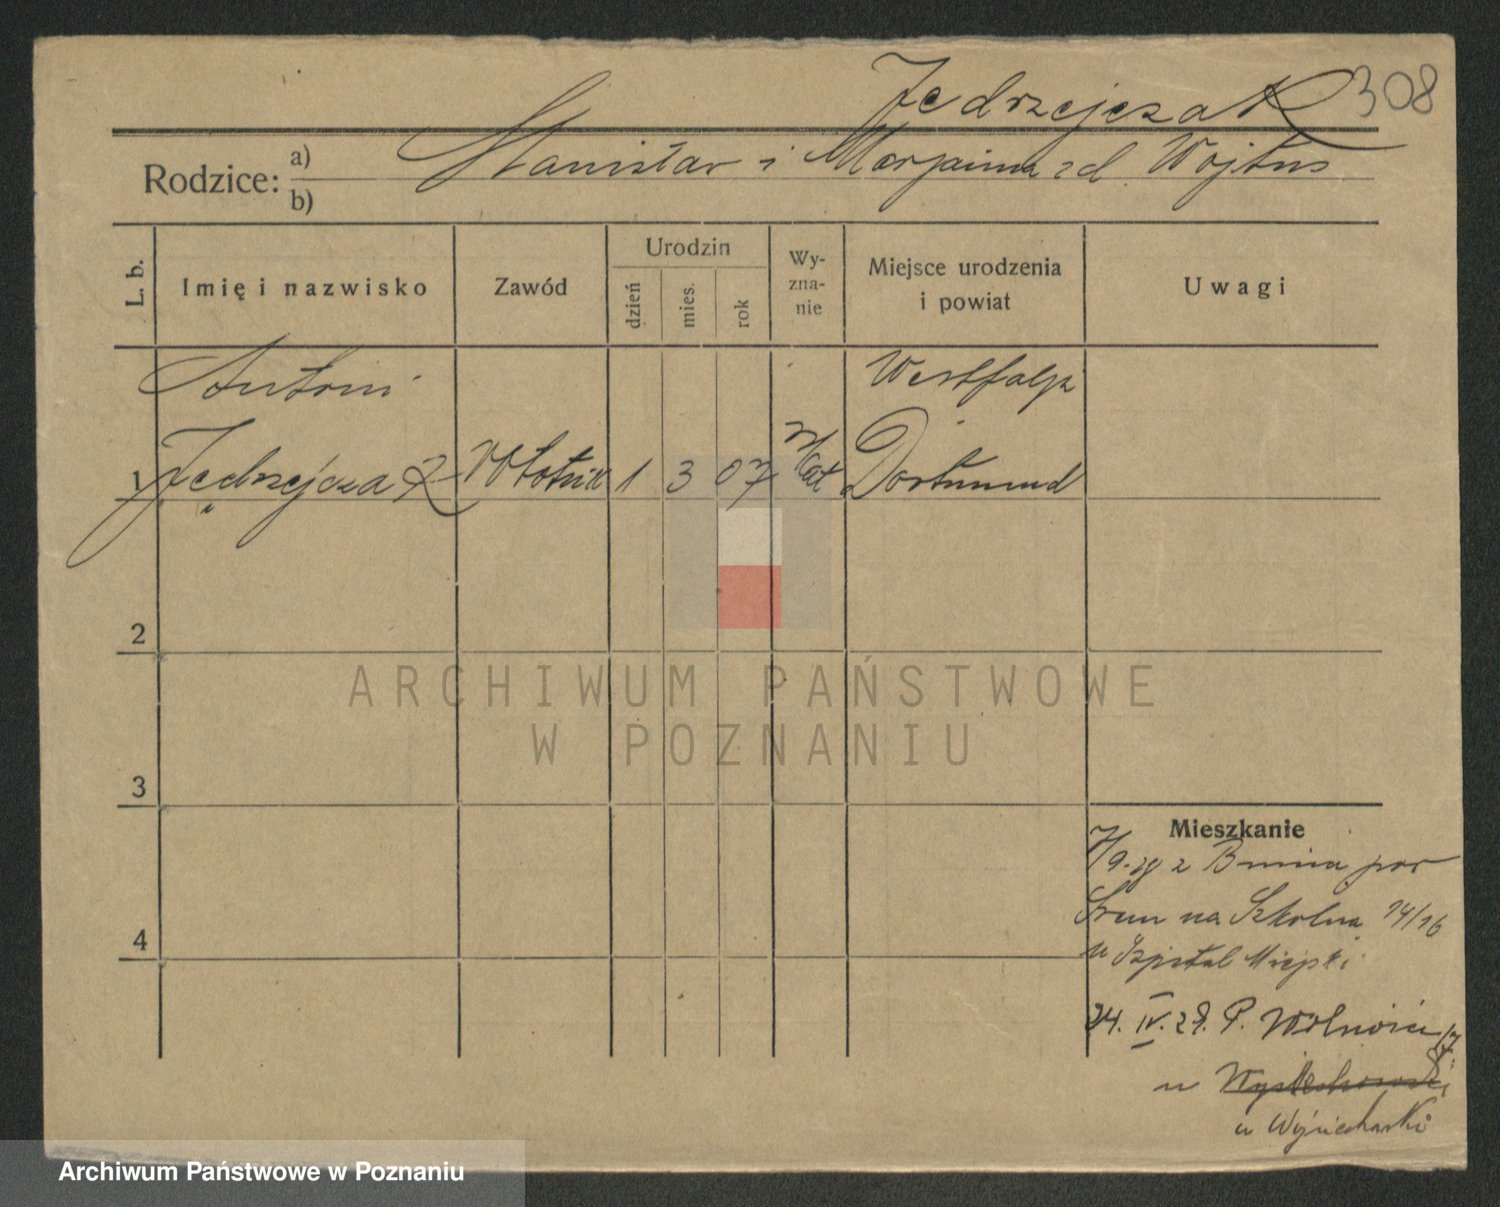 Jędrzejczak 308
Rodzice: a) Stanisław i Marjanna zd. Wojtus
b)
L. b.
Imię i nazwisko
Zawód
Urodzin
dzień
mies.
rok
Wy-
zna-
nie
Miejsce urodzenia
i powiat
Uwagi
Antoni
Westfalja
1 Jędrzejczak robotnik 1 3 07 Kat Dortmund
2
3
4
Mieszkanie
z Bnina pow
Śrem na Szkolna 14/16
w Szpital Miejski
24. IV. 29. P. Wolności
u
u
ARCHIWUM PAŃSTWOWE
W POZNANIU
Archiwum Państwowe w Poznaniu